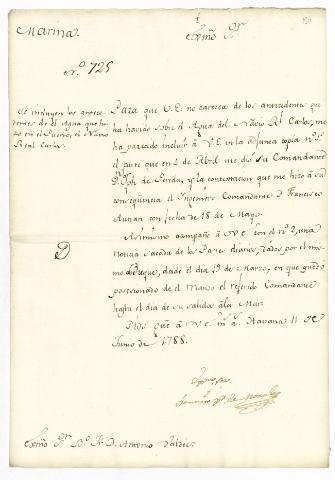 Marina.
Exmô Sr.
N.º 725
Se incluyen los antece-
dentes de el Agua que hi-
zo en el Puerto, el Navio
Real Carlos.
Para que V.E. no carezca de los antecedentes que
ha havido sobre el Agua del Navio Rl. Carlos, me
ha parecido incluir à V.E. en la adjunta copia nº 1º
el parte que en 4 de Abril me dio su Comandante
Dn. Jph. de Pereda, y la contextacion que me hizo à su
consequencia el Ingeniero Comandante D. Francisco
Autran con fecha de 18 de Mayo.
Asimismo acompaño à V.E. con el nº 2, una
noticia sacada de los Partes diarios, dados por el mis-
mo Buque, desde el dia 19 de Marzo, en que quedó
posesionado de el Mando el referido Comandante
hasta el dia de su salida à la Mar.
Dios gue. à V.E. ms. as. Havana 11 de
Junio de 1788.
Exmô Sr.
Exmô Sr. Bo. Fr. D. Antonio Valdés.